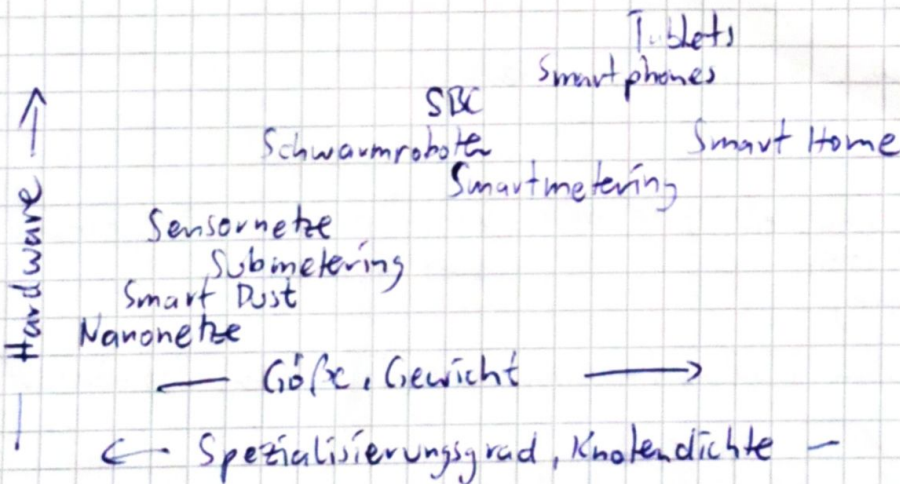 Tablets
Smartphones
SBC
Schwarmroboter
Smart Home
Smartmetering
Sensornetze
Submetering
Smart Dust
Nanonetze
Hardware
Göße, Gewicht
Spezialisierungsgrad, Knotendichte